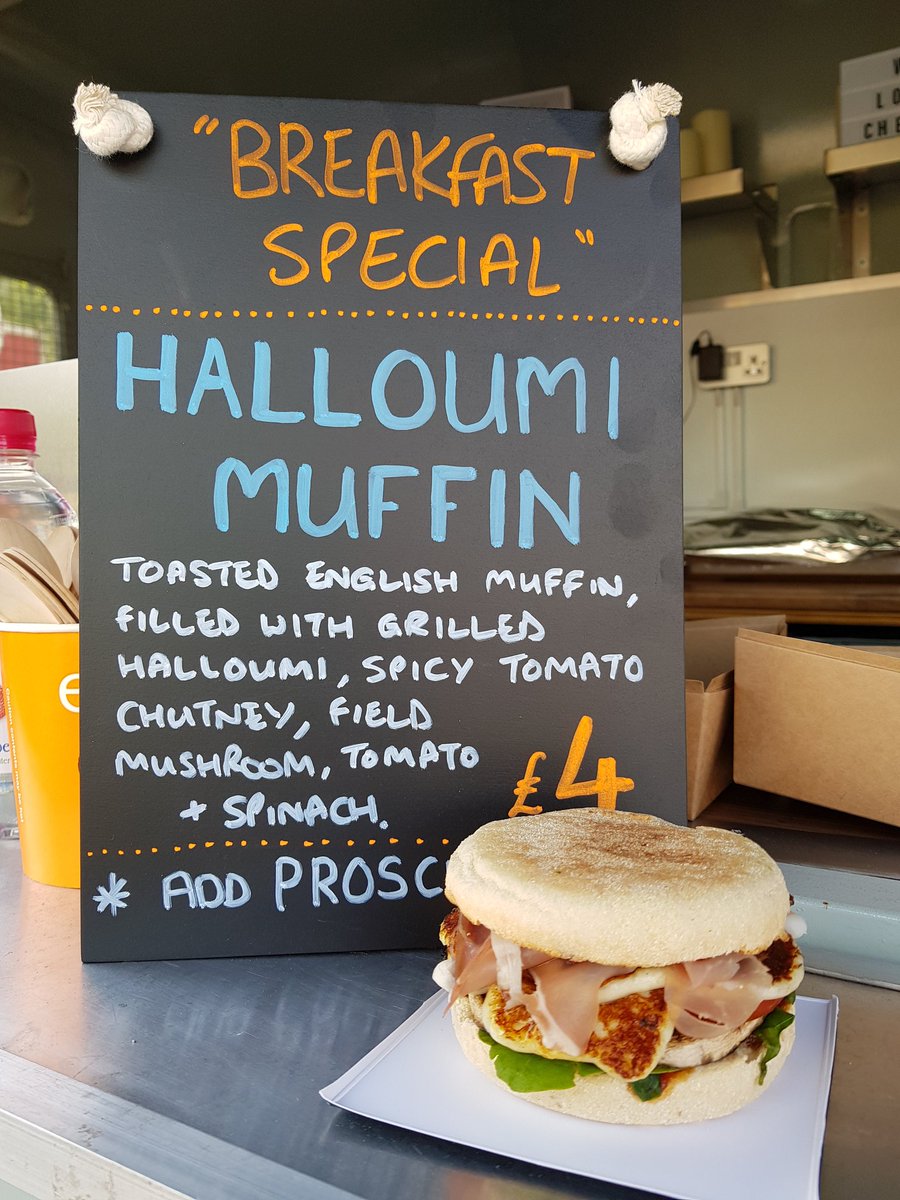 "BREAKFAST
SPECIAL"
HALLOUMI
MUFFIN
TOASTED ENGLISH MUFFIN,
FILLED WITH GRILLED
HALLOUMI, SPICY TOMATO
CHUTNEY, FIELD
MUSHROOM, TOMATO
+ SPINACH.
£4
* ADD PROSC